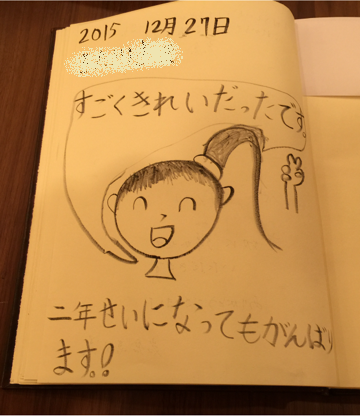 2015 12月27日
すごくきれいだったです。
二年せいになってもがんばり
ます。!